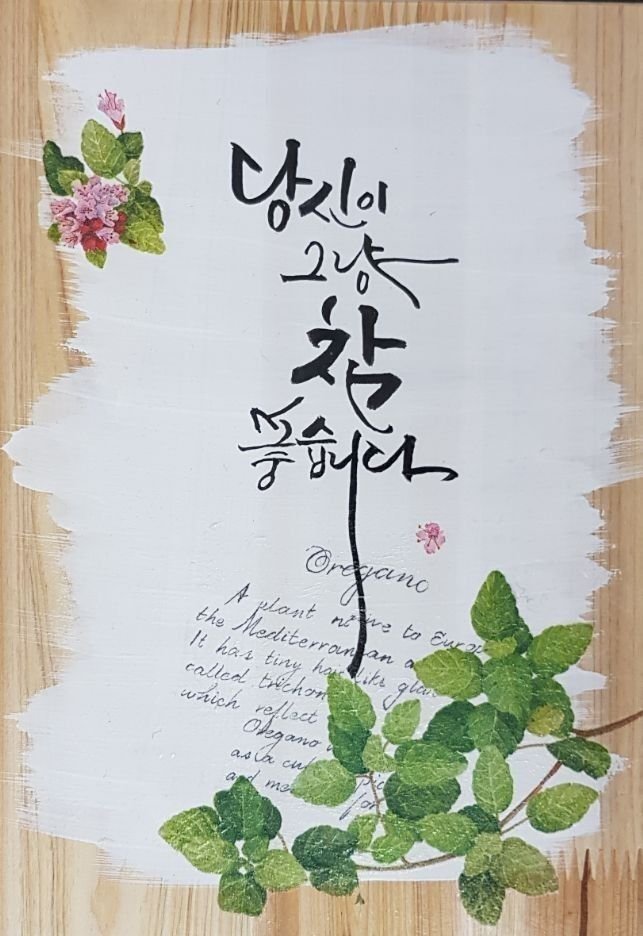 당신이
그냥
참
좋습니다
Oregano
A plant native to Europ
the Mediterranean a
It has tiny hair like glan
called trichom
which reflect
Oregano
as a cul
and me for